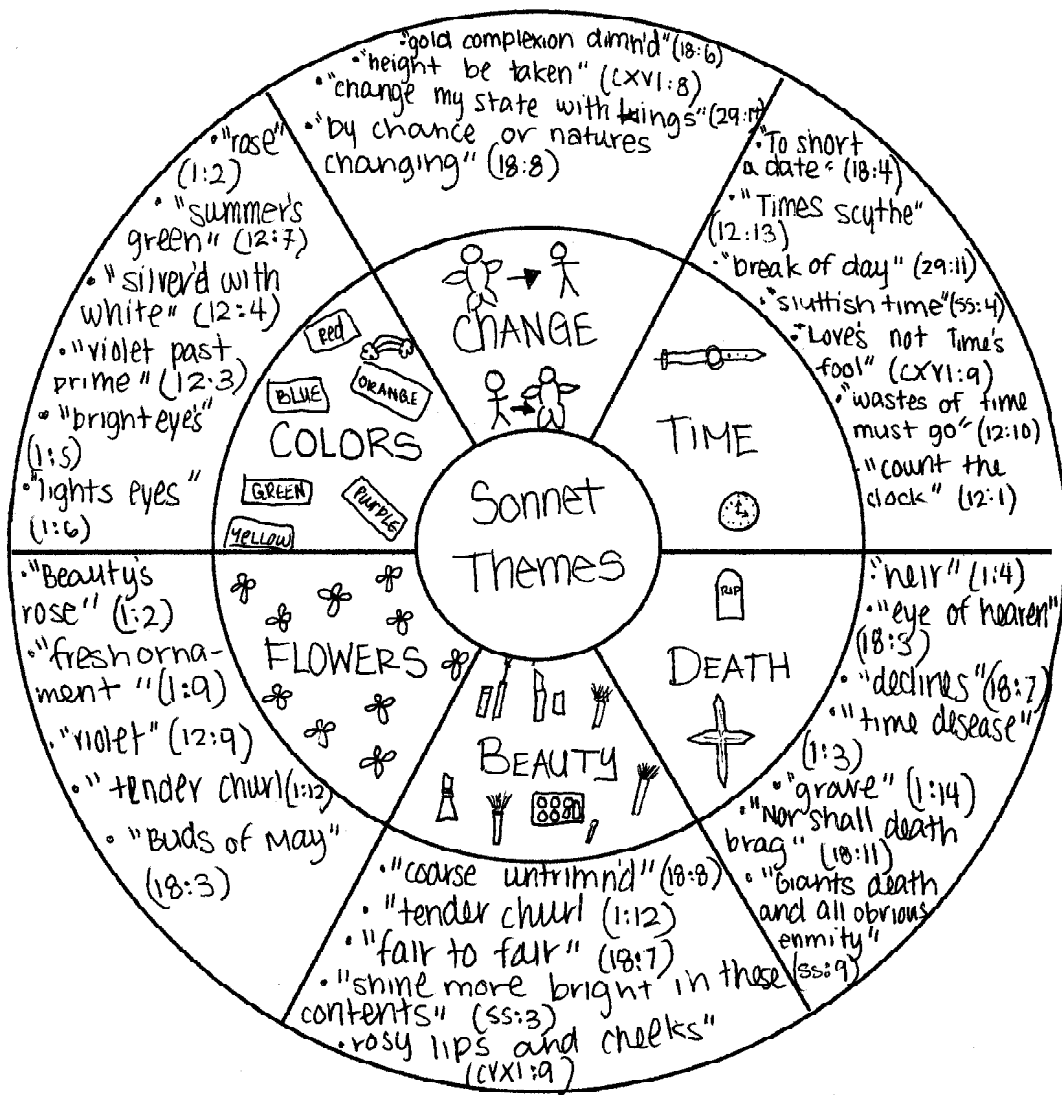 Sonnet
Themes
CHANGE
• "gold complexion dimn'd" (18:6)
• "height be taken" (CXVI:8)
• "change my state with kings" (29:14)
• "by chance or natures
changing" (18:8)
TIME
• "To short
a date" (18:4)
• "Times scythe"
(12:13)
• "break of day" (29:11)
• "sluttish time" (55:4)
• "Love's not Time's
fool" (CXVI:9)
• "wastes of time
must go" (12:10)
• "count the
clock" (12:1)
DEATH
RIP
• "heir" (1:4)
• "eye of heaven"
(18:3)
• "declines" (18:7)
• "time desease"
(1:3)
• "grave" (1:14)
• "Nor shall death
brag" (18:11)
• "Giants death
and all obvious
enmity"
(55:9)
BEAUTY
• "coarse untrimn'd" (18:8)
• "tender churl (1:12)
• "fair to fair" (18:7)
• "shine more bright in these
contents" (55:3)
• rosy lips and cheeks"
(CVXI:9)
FLOWERS
• "Beauty's
rose" (1:2)
• "fresh orna-
ment" (1:9)
• "violet" (12:9)
• "tender churl (1:12)
• "Buds of May"
(18:3)
COLORS
Red
BLUE
ORANGE
GREEN
PURPLE
YELLOW
• "rose"
(1:2)
• "summer's
green" (12:7)
• "silver'd with
white" (12:4)
• "violet past
prime" (12:3)
• "bright eye's"
(1:5)
• "lights eyes"
(1:6)